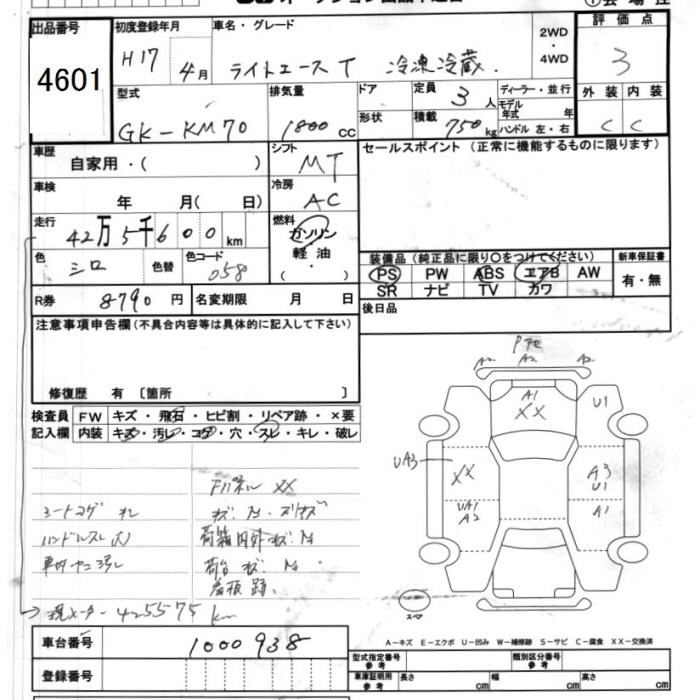 出品番号
4601
初度登録年月
H17 4月
車名・グレード
ライトエースT 冷凍冷蔵.
2WD
・
4WD
評価点
3
型式
GK-KM70
排気量
1800 CC
ドア
形状
定員 3人
積載 750kg
ディーラー・並行
モデル
年式 年
ハンドル 左・右
外装 内装
C C
車歴
自家用・( )
シフト
MT
セールスポイント (正常に機能するものに限ります)
車検
年 月( 日)
冷房
AC
走行
42万5千600km
燃料
ガソリン
軽油・
( )
色
シロ
色替
色コード
058
装備品 (純正品に限り○をつけてください)
PS PW ABS エアB AW
SR ナビ TV カワ
新車保証書
有・無
R券 8790円
名変期限 月 日
後日品
注意事項申告欄(不具合内容等は具体的に記入して下さい)
修復歴 有 〔箇所 〕
検査員
記入欄
FW キズ・飛石・ヒビ割・リペア跡・×要
内装 キズ・汚レ・コゲ・穴・スレ・キレ・破レ
XX
シートコゲ
ハンドルスレ(大)
荷箱内外
荷台
看板跡.
現メーター 425575km
A2 A2
A1
XX
U1
UA3
XX
UA1
A2
A3
U1
A1
スペア
A-キズ E-エクボ U-凹み W-補修跡 S-サビ C-腐食 XX-交換済
車台番号
1000938
登録番号
型式指定番号
参考
類別区分番号
参考
車庫証明用
参考
長さ cm
幅 cm
高さ cm